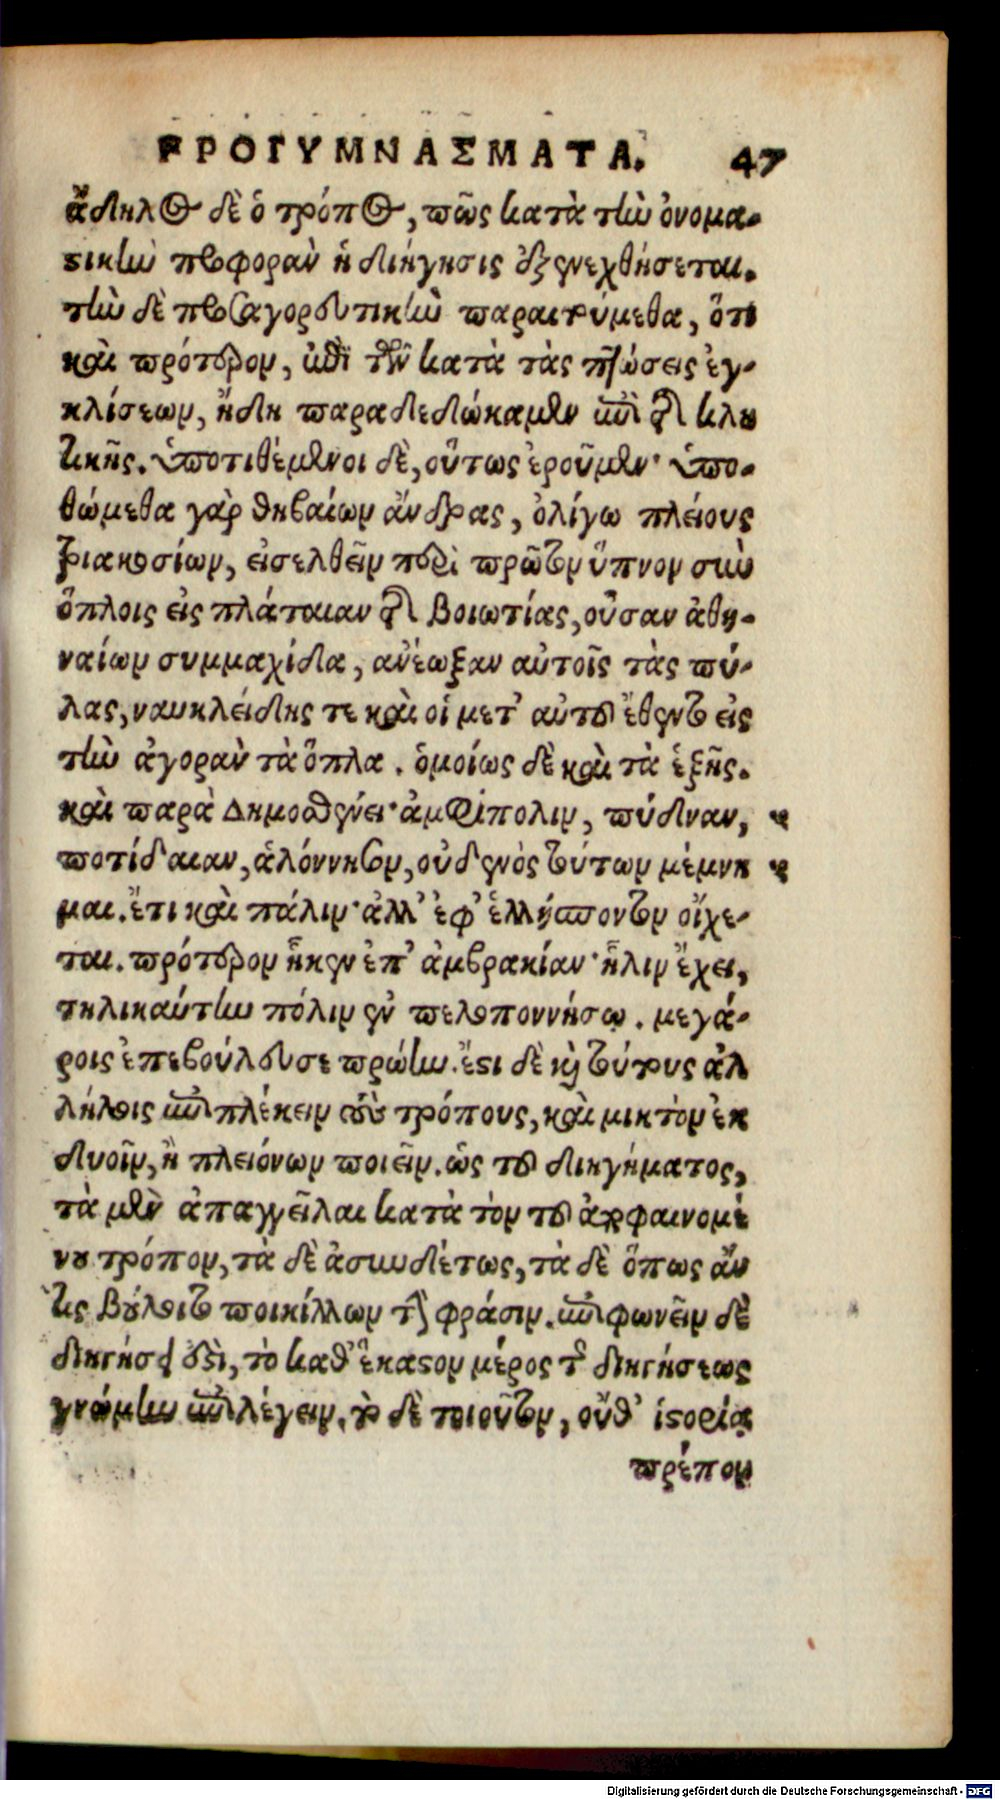 ΠΡΟΓΥΜΝΑΣΜΑΤΑ. 47
ἄδηλος δὲ ὁ τρόπος, πῶς κατὰ τὴν ὀνομα-
στικὴν προφορὰν ἡ διήγησις ἐξενεχθήσεται.
τὴν δὲ προσαγορευτικὴν παραιτούμεθα, ὅτι
καὶ πρότερον, ἐπὶ τῶν κατὰ τὰς πτώσεις ἐγ-
κλίσεων, ἤδη παραδεδώκαμεν ἐπὶ τῆς κλη
τικῆς. ὑποτιθέμενοι δὲ, οὕτως ἐροῦμεν· ὑπο-
θώμεθα γὰρ θηβαίων ἄνδρας, ὀλίγω πλείους
τριακοσίων, εἰσελθεῖν περὶ πρῶτον ὕπνον σὺν
ὅπλοις εἰς πλάταιαν τῆς βοιωτίας, οὖσαν ἀθη-
ναίων συμμαχίδα, ἀνέωξαν αὐτοῖς τὰς πύ-
λας, ναυκλείδης τε καὶ οἱ μετ' αὐτοῦ ἔθεντο εἰς
τὴν ἀγορὰν τὰ ὅπλα. ὁμοίως δὲ καὶ τὰ ἑξῆς.
καὶ παρὰ Δημοσθένει· ἀμφίπολιν, πύδναν,
ποτίδαιαν, ἁλόννησον, οὐδενὸς τούτων μέμνη
μαι. ἔτι καὶ πάλιν· ἀλλ' ἐφ' ἑλλήσποντον οἴχε-
ται. πρότερον ἧκεν ἐπ' ἀμβρακίαν· ἦλιν ἔχει,
τηλικαύτην πόλιν ἐν πελοποννήσῳ. μεγά-
ροις ἐπεβούλευσε πρώην. ἔστι δὲ καὶ τούτους ἀλ
λήλοις ἐπιπλέκειν τοὺς τρόπους, καὶ μικτὸν ἐκ
δυοῖν, ἢ πλειόνων ποιεῖν. ὡς τοῦ διηγήματος,
τὰ μὲν ἀπαγγεῖλαι κατὰ τὸν τοῦ ἀποφαινομέ
νου τρόπον, τὰ δὲ ἀσυνδέτως, τὰ δὲ ὅπως ἄν
τις βούλοιτο ποικίλλων τὴν φράσιν. ἐπιφωνεῖν δὲ
διηγήσει δεῖ, τὸ καθ' ἕκαστον μέρος τῆς διηγήσεως
γνώμην ἐπιλέγειν. τὸ δὲ τοιοῦτον, οὔθ' ἱστορίᾳ
πρέπον
Digitalisierung gefördert durch die Deutsche Forschungsgemeinschaft - DFG